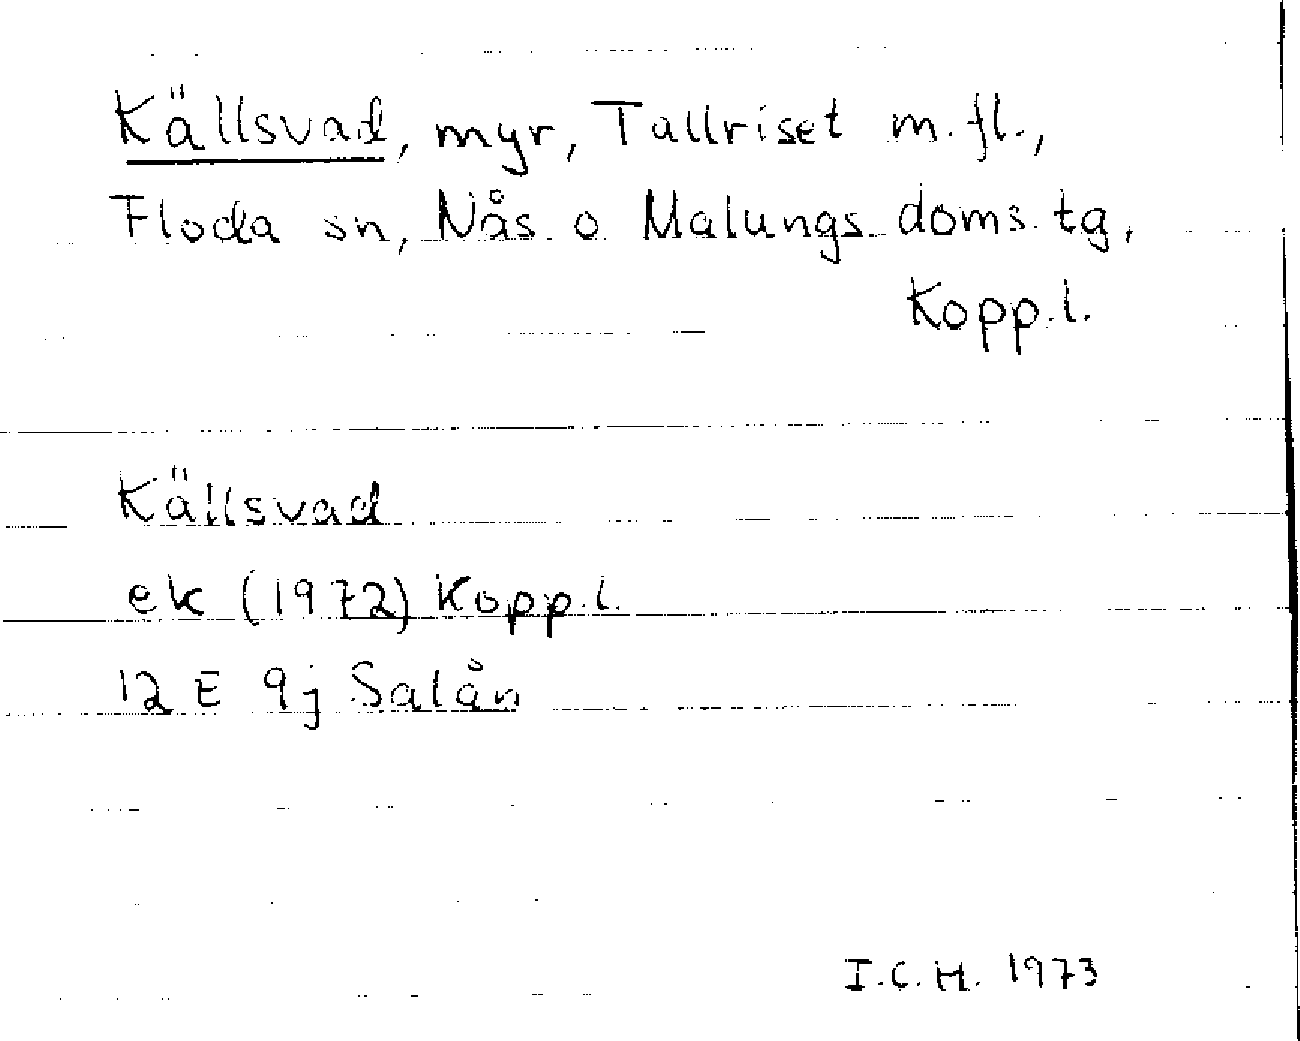 Källsvad, myr, Tallriset m.fl.,
Floda sn, Nås o Malungs doms.tg,
Kopp.l.
Källsvad
ek (1972) Kopp.l.
12 E 9j Salån
I.C.H. 1973